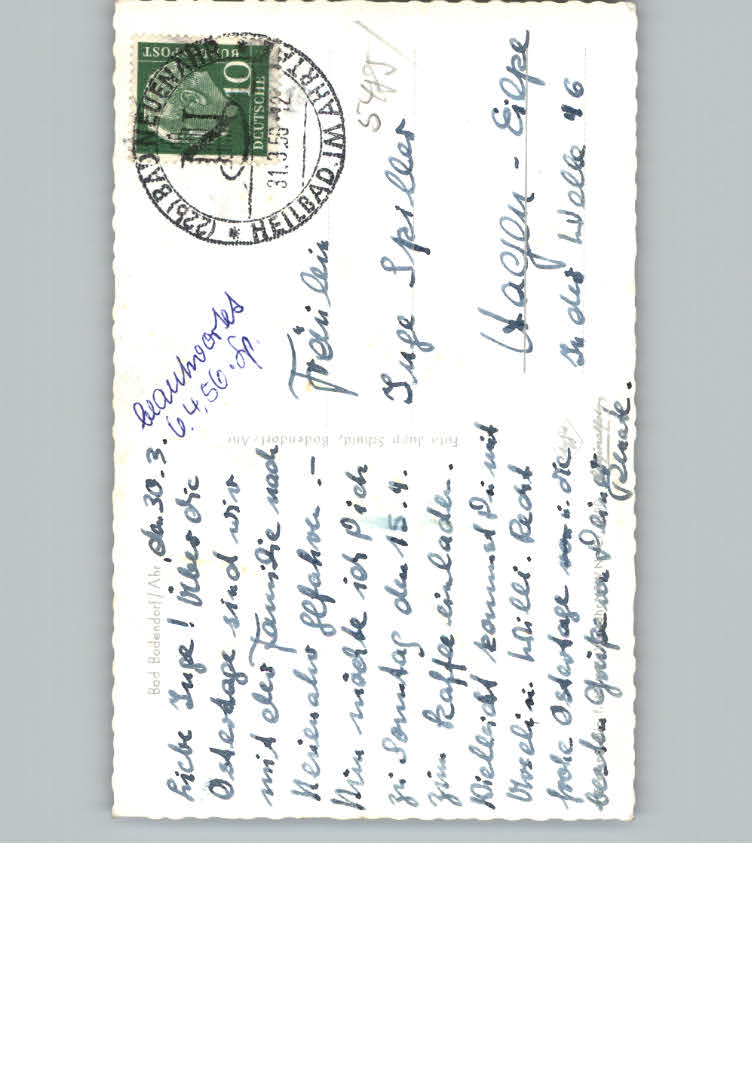 Bad Bodendorf/Ahr
den 30.3.
Liebe Inge! Über die
Ostertage sind wir
mit der Familie nach
Neuenahr gefahren. –
Nun möchte ich Dich
zu Sonntag den 15.4.
zum Kaffee einladen.
Vielleicht kommst Du mit
u. Willi. Recht
frohe Ostertage u. die
besten Grüße von Deiner
Renate.
beantwortet
6.4.56. Sp.
Foto Jupp Schmid, Bodendorf/Ahr
DEUTSCHE
BUNDESPOST
10
(22b) BAD NEUENAHR
* HEILBAD IM AHRTAL
31.3.56-12
5485
Fräulein
Inge Spiller
Hagen-Eilpe
In der Welle 46